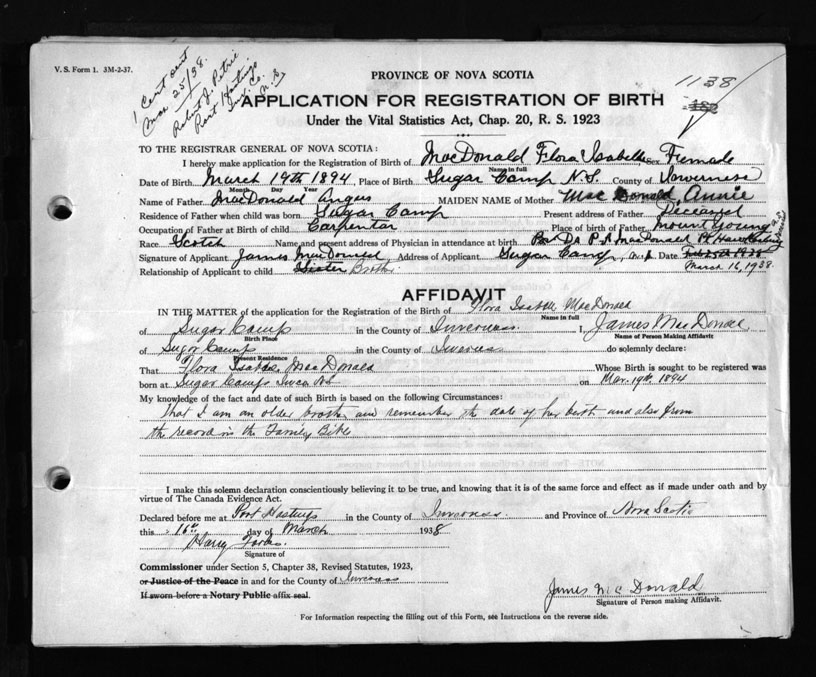 V. S. Form 1. 3M-2-37.
1 Cent cert
Mar 25/38.
Robert J. Petrie
Port Hastings
Inv. Co.
N.S
PROVINCE OF NOVA SCOTIA
1138
182
APPLICATION FOR REGISTRATION OF BIRTH
Under the Vital Statistics Act, Chap. 20, R. S. 1923
TO THE REGISTRAR GENERAL OF NOVA SCOTIA:
I hereby make application for the Registration of Birth of MacDonald Flora Isabelle Sex Female
Name in full
Date of Birth March 19th 1894, Place of Birth Sugar Camp N.S. County of Inverness
Month Day Year
Name of Father MacDonald Angus MAIDEN NAME of Mother Mac Donald, Annie
Residence of Father when child was born Sugar Camp Present address of Father Deceased
Occupation of Father at Birth of child Carpentar Place of birth of Father Mount Young
Race Scotch Name and present address of Physician in attendance at birth Dr P.A. MacDonald Pt Hawkesbury
Signature of Applicant James MacDonald, Address of Applicant Sugar Camp, N.S. Date 1938
March 16, 1938.
Relationship of Applicant to child Sister Brother
AFFIDAVIT
IN THE MATTER of the application for the Registration of the Birth of Flora Isabelle MacDonald
Name in full
of Sugar Camp in the County of Inverness. I, James MacDonald
Birth Place Name of Person Making Affidavit
of Sugar Camp in the County of Inverness do solemnly declare:
Present Residence
That Flora Isabelle MacDonald Whose Birth is sought to be registered was
born at Sugar Camp Inver NS on Mar. 19th, 1894
My knowledge of the fact and date of such Birth is based on the following Circumstances:
That I am an older brother and remember the date of her birth and also from
the record in the Family Bible
I make this solemn declaration conscientiously believing it to be true, and knowing that it is of the same force and effect as if made under oath and by
virtue of The Canada Evidence Act.
Declared before me at Port Hastings in the County of Inverness. and Province of Nova Scotia
this 16th day of March 1938
Harry
Signature of
Commissioner under Section 5, Chapter 38, Revised Statutes, 1923,
or Justice of the Peace in and for the County of Inverness
If sworn before a Notary Public affix seal.
James McDonald
Signature of Person making Affidavit.
For Information respecting the filling out of this Form, see Instructions on the reverse side.